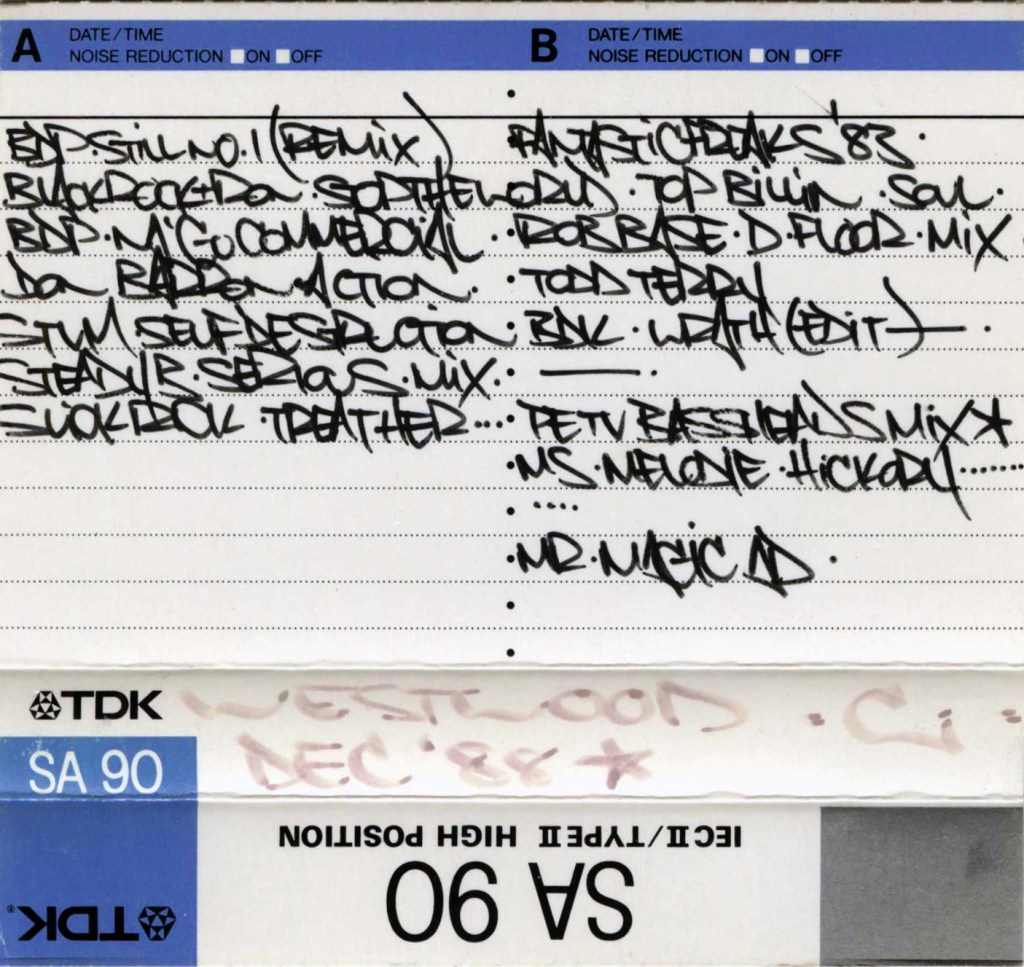 A DATE/TIME
NOISE REDUCTION ON OFF
BDP. STILL NO. 1 (REMIX)
BLACK ROCK + RON. STOP THE WORLD
BDP. N.Y. COMMERCIAL
DON BARRON. ACTION.
STVM SELF DESTRUCTION
STEADY B. SERIOUS. MIX.
SLICK RICK TREAT HER...
B DATE/TIME
NOISE REDUCTION ON OFF
FANTASTIC FREAKS '83.
TOP BILLIN. SOUL.
ROB BASE. D. FLOOR. MIX
TODD TERRY
BDK. WRATH (EDIT) — .
— .
PETV BASSHEADS MIX ★
MS. MELODIE. HICKORY ......
....
MR. MAGIC AD.
TDK WESTWOOD. C :
SA 90 DEC '88 ★
IEC II/TYPE II HIGH POSITION
SA 90
TDK